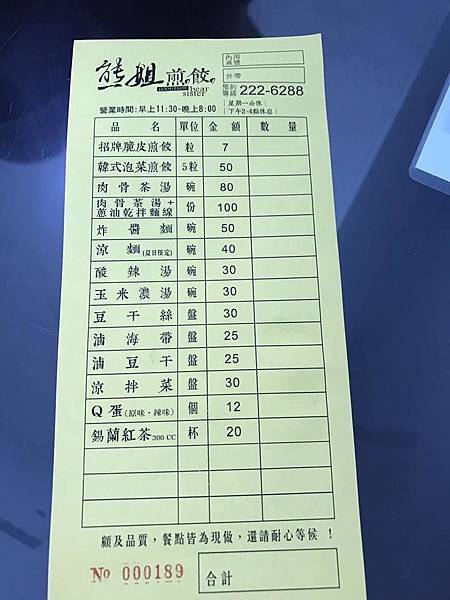 熊姐煎餃
bear
sister
內用
桌號
外帶
預約
專線 222-6288
營業時間:早上11:30-晚上8:00
星期一公休
下午2-4點休息
品名 單位 金額 數量
招牌脆皮煎餃 粒 7
韓式泡菜煎餃 5粒 50
肉骨茶湯 碗 80
肉骨茶湯+
蔥油乾拌麵線 份 100
炸醬麵 碗 50
涼麵(夏日限定) 碗 40
酸辣湯 碗 30
玉米濃湯 碗 30
豆干絲 盤 30
滷海帶 盤 25
滷豆干 盤 25
涼拌菜 盤 30
Q蛋(原味・辣味) 個 12
錫蘭紅茶300 CC 杯 20
顧及品質，餐點皆為現做，還請耐心等候！
No 000189
合計